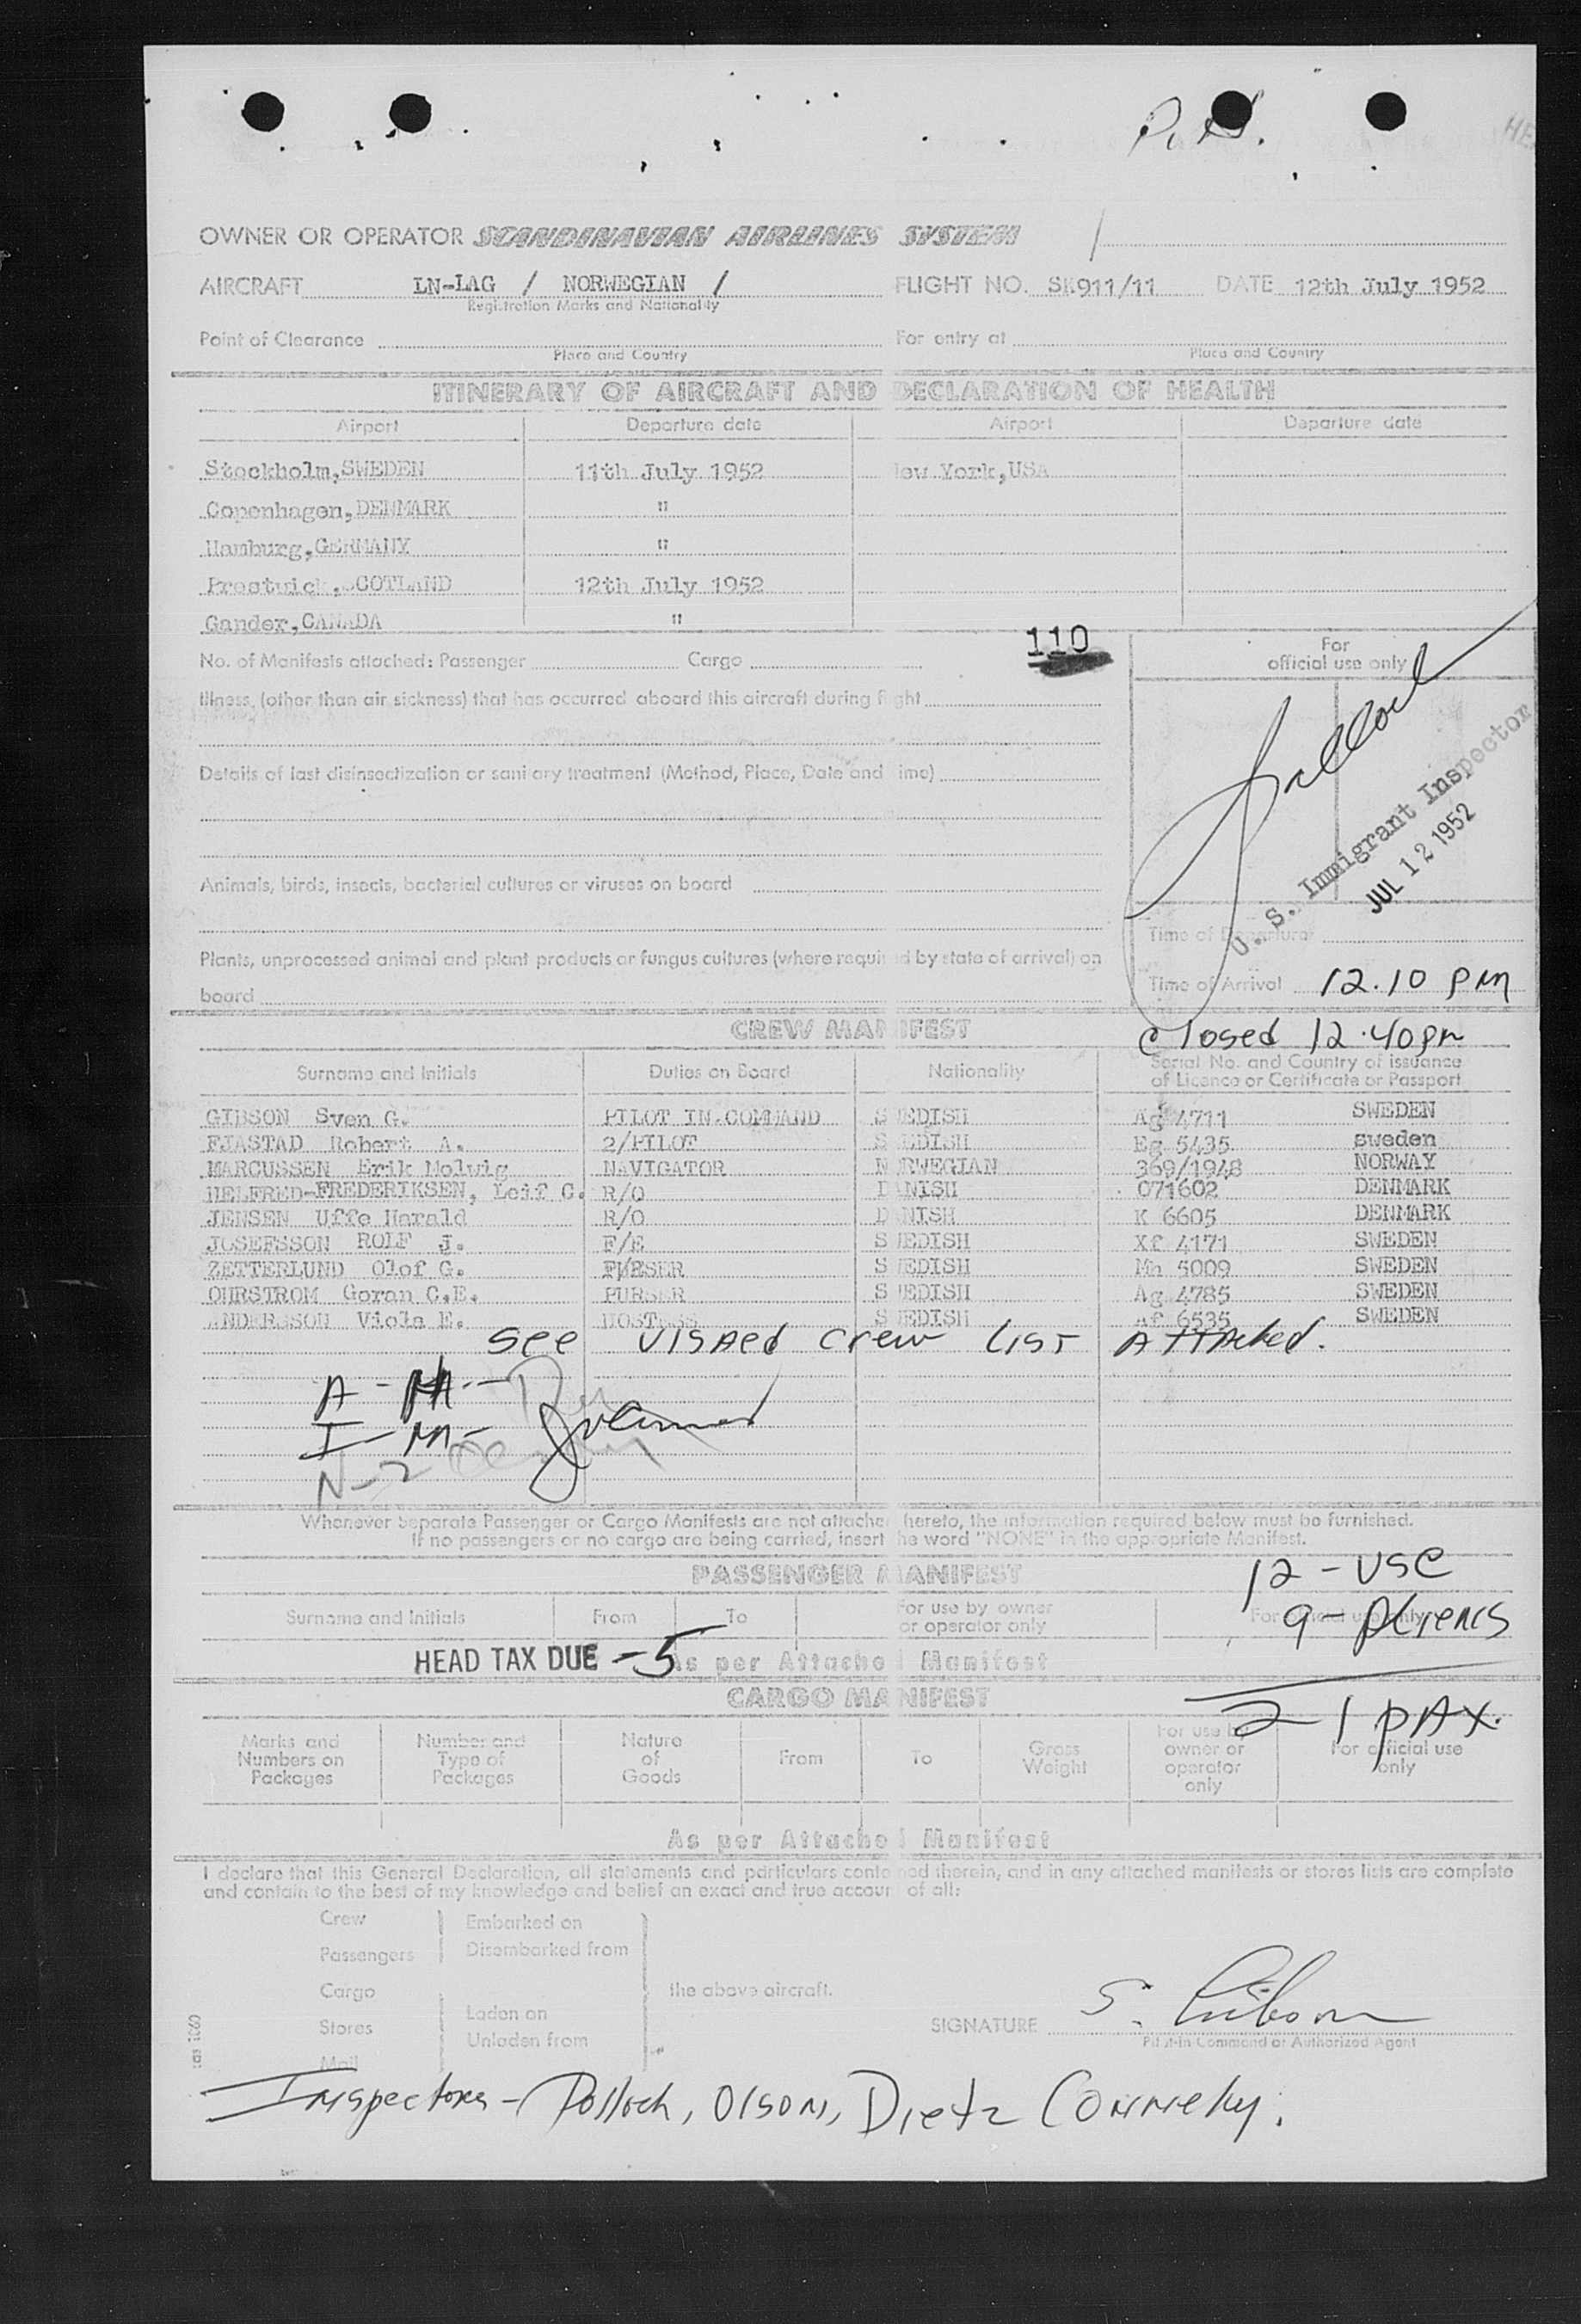 P.A.
HE
OWNER OR OPERATOR SCANDINAVIAN AIRLINES SYSTEM
AIRCRAFT LN-LAG / NORWEGIAN / FLIGHT NO. SK911/11 DATE 12th July 1952
Registration Marks and Nationality
Point of Clearance For entry at
Place and Country Place and Country
ITINERARY OF AIRCRAFT AND DECLARATION OF HEALTH
Airport Departure date Airport Departure date
Stockholm,SWEDEN 11th July 1952 New York,USA
Copenhagen,DENMARK "
Hamburg,GERMANY "
Prestwick,SCOTLAND 12th July 1952
Gander,CANADA "
110
No. of Manifests attached: Passenger Cargo
For
official use only
Illness, (other than air sickness) that has occurred aboard this aircraft during flight
Details of last disinsectization or sanitary treatment (Method, Place, Date and Time)
U. S. Immigrant Inspector
JUL 12 1952
Animals, birds, insects, bacterial cultures or viruses on board
Time of Departure
Plants, unprocessed animal and plant products or fungus cultures (where required by state of arrival) on
board
Time of Arrival 12.10 PM
CREW MANIFEST
Closed 12.40pm
Surname and Initials Duties on Board Nationality Serial No. and Country of issuance
of Licence or Certificate or Passport
GIBSON Sven G. PILOT IN COMMAND SWEDISH Ag 4711 SWEDEN
FJASTAD Robert A. 2/PILOT SWEDISH Eg 5435 sweden
MARCUSSEN Erik Molwig NAVIGATOR NORWEGIAN 369/1948 NORWAY
HELFRED-FREDERIKSEN, Leif C. R/O DANISH 071602 DENMARK
JENSEN Uffe Harald R/O DANISH K 6605 DENMARK
JOSEFSSON ROLF J. F/E SWEDISH Xf 4171 SWEDEN
ZETTERLUND Olof G. PURSER SWEDISH Mh 5009 SWEDEN
OHRSTROM Goran C.E. PURSER SWEDISH Ag 4785 SWEDEN
ANDERSSON Viola E. HOSTESS SWEDISH Af 6535 SWEDEN
See visaed crew list Attached.
A - M -
I - M -
N-2
Whenever Separate Passenger or Cargo Manifests are not attached hereto, the information required below must be furnished.
If no passengers or no cargo are being carried, insert the word "NONE" in the appropriate Manifest.
PASSENGER MANIFEST
12 - USC
Surname and Initials From To For use by owner
or operator only For official use only
9 - Aliens
HEAD TAX DUE - 5 As per Attached Manifest
CARGO MANIFEST
21 PAX.
Marks and
Numbers on
Packages
Number and
Type of
Packages
Nature
of
Goods
From To Gross
Weight
For use by
owner or
operator
only
For official use
only
As per Attached Manifest
I declare that this General Declaration, all statements and particulars contained therein, and in any attached manifests or stores lists are complete
and contain to the best of my knowledge and belief an exact and true account of all:
Crew Embarked on
Passengers Disembarked from
Cargo the above aircraft.
Stores Laden on
Mail Unladen from
SIGNATURE S. Gibson
Pilot-in Command or Authorized Agent
Inspectors - Pollock, Olson, Dietz Connelly.